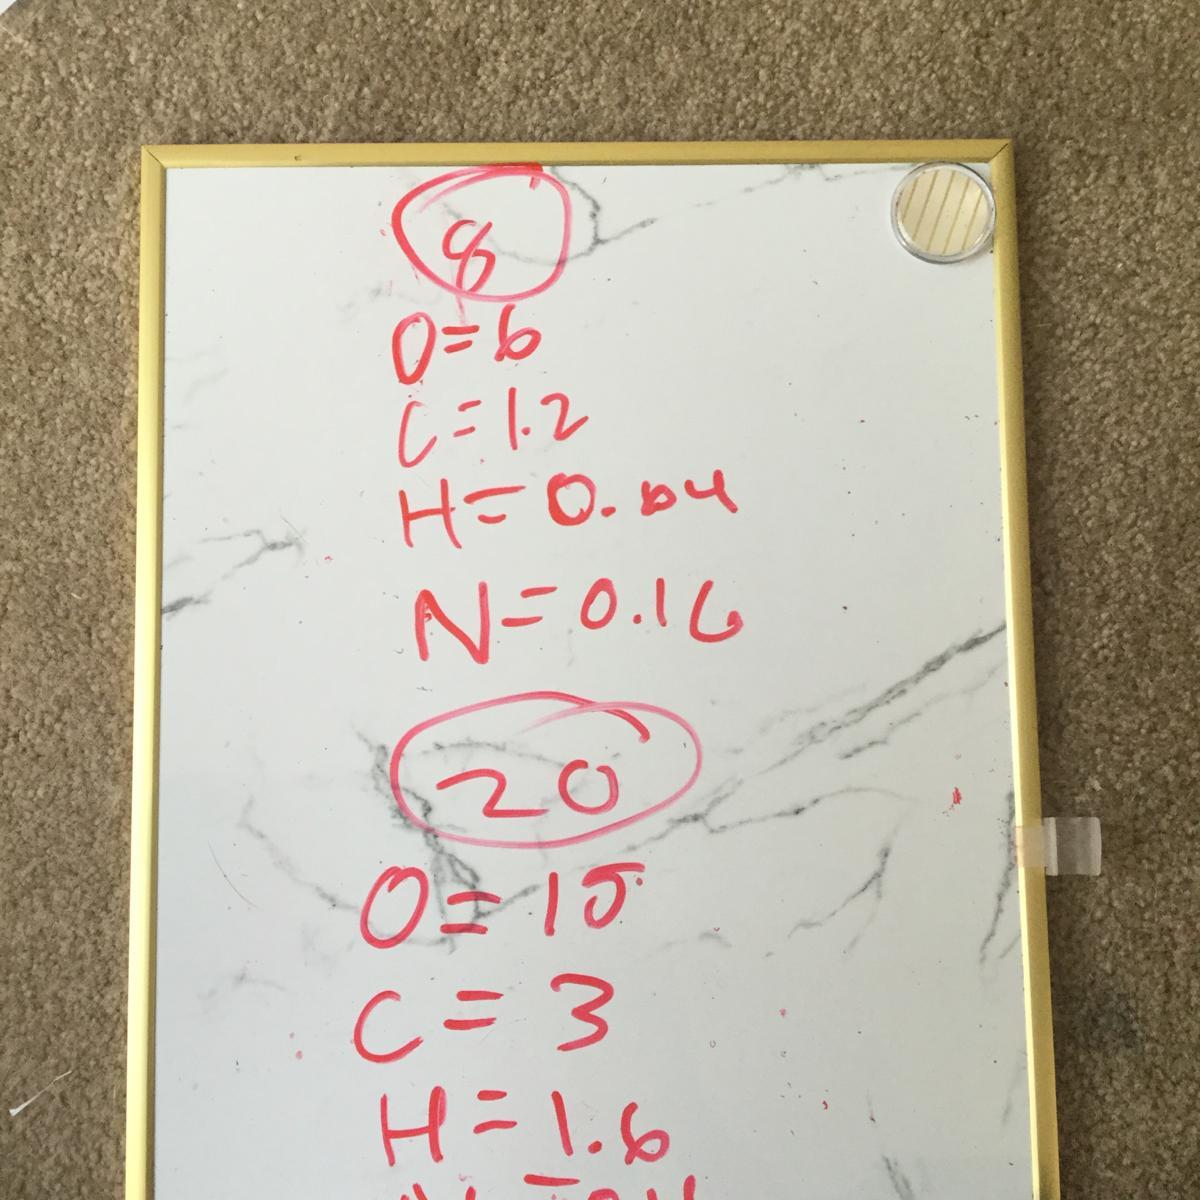 8
O=6
C=1.2
H=0.64
N=0.16
20
O=15
C=3
H=1.6